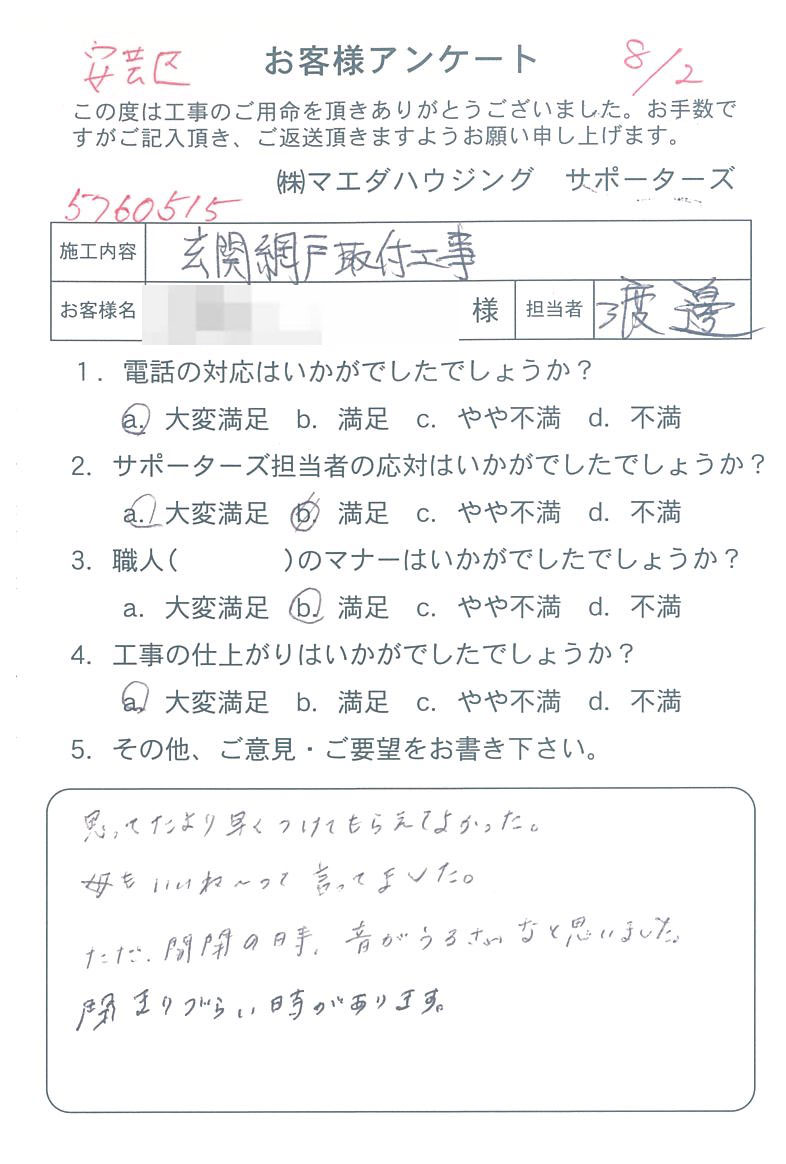 安芸区 お客様アンケート 8/2
この度は工事のご用命を頂きありがとうございました。お手数で
すがご記入頂き、ご返送頂きますようお願い申し上げます。
㈱マエダハウジング サポーターズ
5760515
施工内容 玄関網戸取付工事
お客様名 様 担当者 渡邊
1. 電話の対応はいかがでしたでしょうか？
a. 大変満足 b. 満足 c. やや不満 d. 不満
2. サポーターズ担当者の応対はいかがでしたでしょうか？
a. 大変満足 b. 満足 c. やや不満 d. 不満
3. 職人( )のマナーはいかがでしたでしょうか？
a. 大変満足 b. 満足 c. やや不満 d. 不満
4. 工事の仕上がりはいかがでしたでしょうか？
a. 大変満足 b. 満足 c. やや不満 d. 不満
5. その他、ご意見・ご要望をお書き下さい。
思ってたより早くつけてもらえてよかった。
母もいいね〜って言ってました。
ただ、開閉の時、音がうるさいなと思いました。
閉まりづらい時があります。